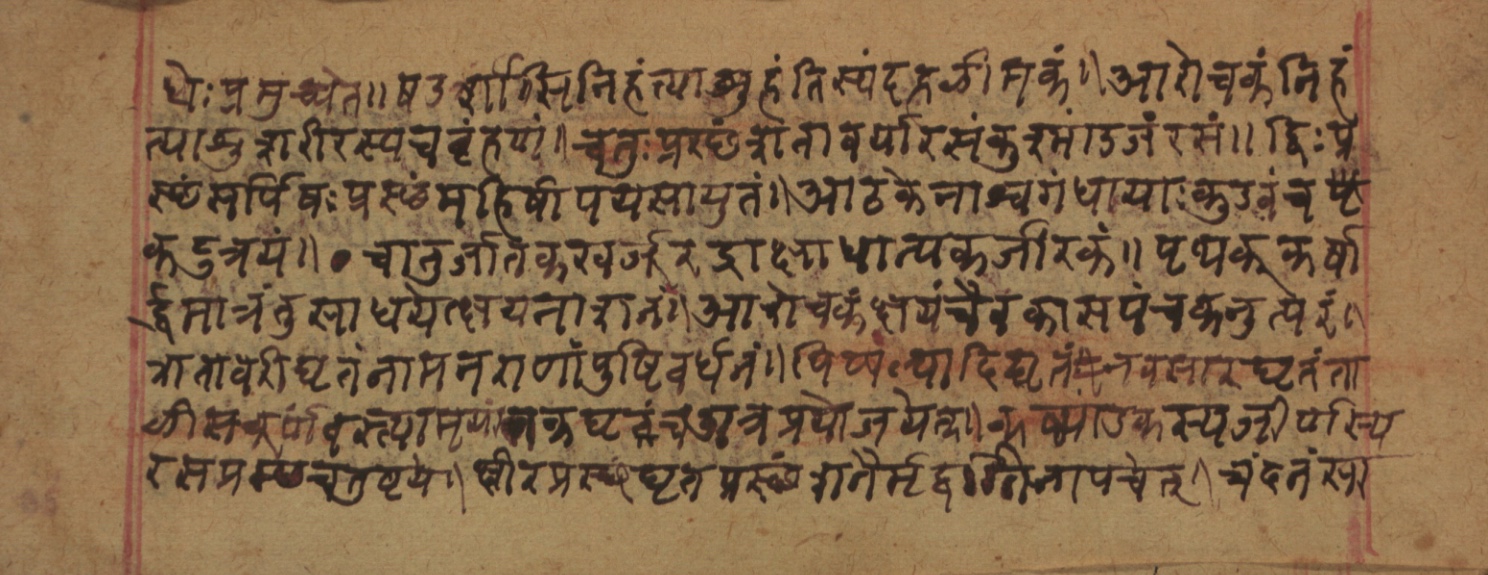 धेः प्रमुच्येत॥ षडशांसि निहंत्याशु हंति स्पंदहलीमकं॥ आरोचकं निहं
त्याशु शरीरस्य च बृंहणं॥ चतुःप्रस्छं शतावर्या रसंकुडमांडजं रसं॥ द्विःप्र
स्छं सर्पिषः प्रस्छं महिषीपयसायुतं॥ आठकेनाश्वगंधायाः कुडवं च पृ
कटुत्रयं॥ चातुर्जातकखर्जूरद्राक्षाधान्यकजीरकं॥ पृथक् कर्षा
र्द्धमात्रं तु साधयेत्क्षयनाशनं॥ आरोचकं क्षयं चैव कासपंचकनुत्परं॥
शतावरीघृतं नाम नराणां पुष्टिवर्धनं॥ पिप्पल्यादिघृतं नवसारघृतं ता
लीसचूर्ण घृतंच अत्र प्रयोजयेत्॥ कुष्मांडकस्य जीर्णस्य
रसप्रस्छचतुष्टये॥ क्षीरप्रस्छं घृतप्रस्छं शनैर्मृद्वग्निना पचेत्॥ चंदनं सा